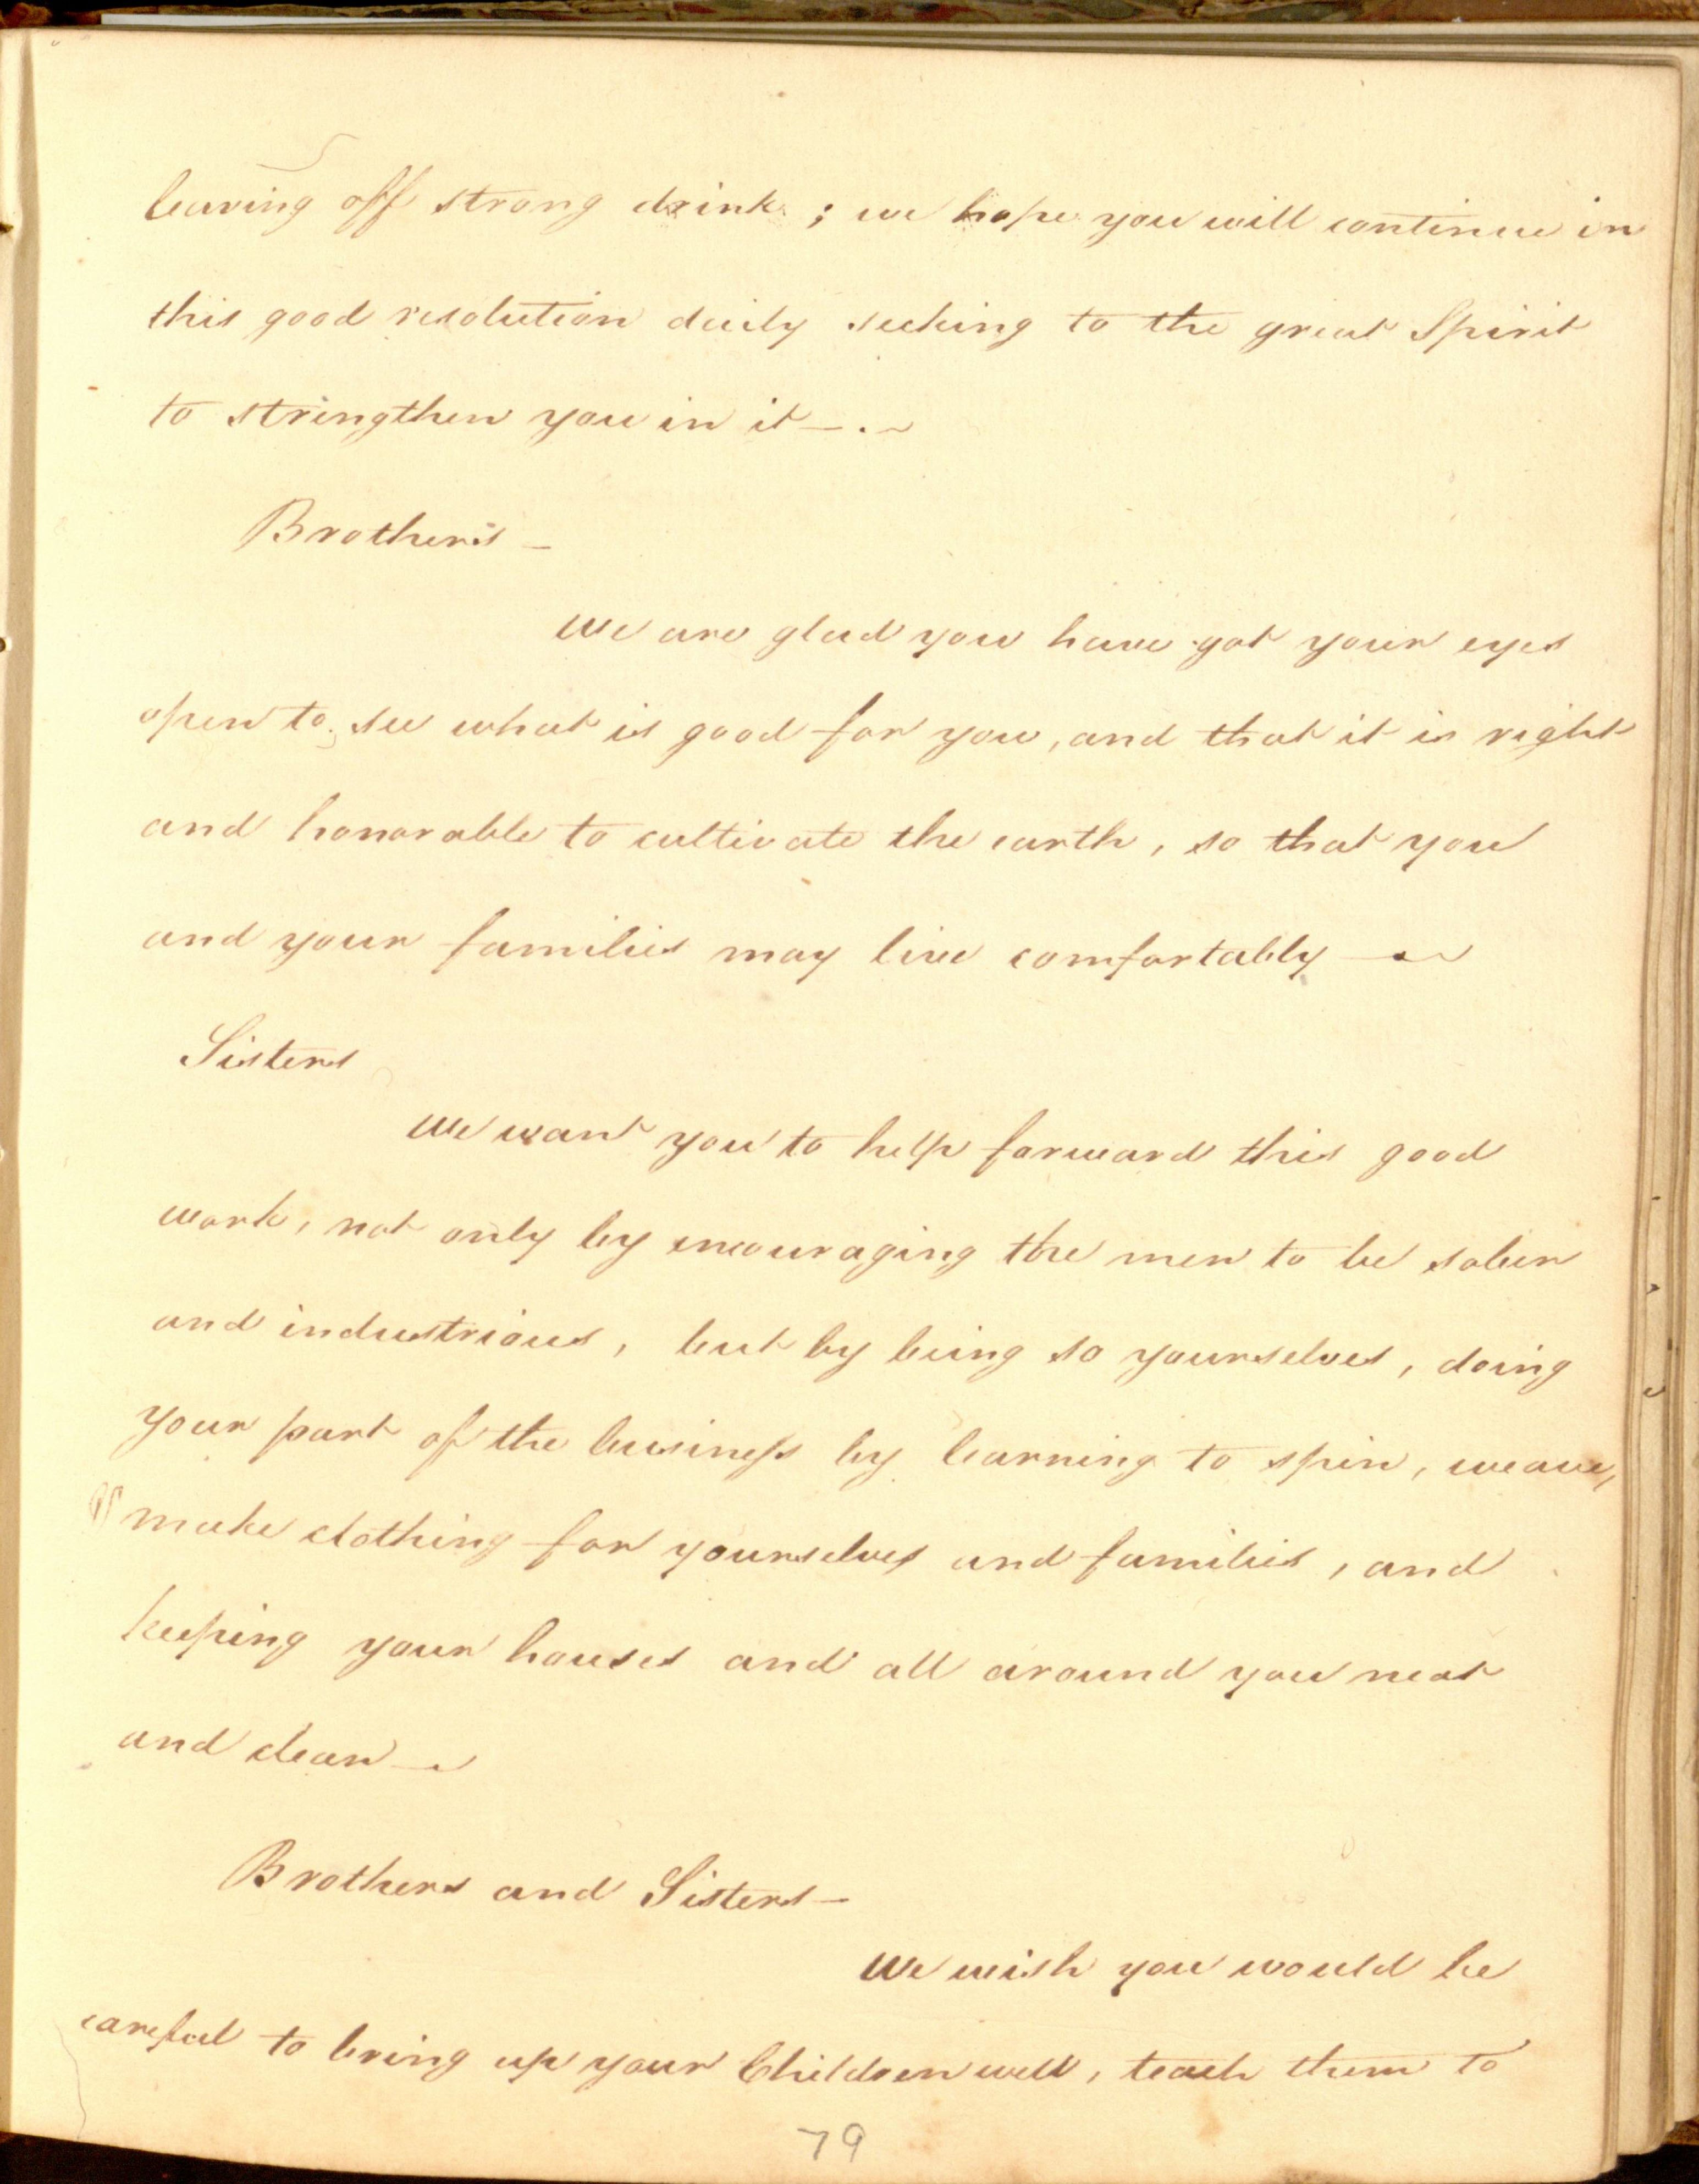 leaving off strong drink ; we hope you will continue in
this good resolution daily seeking to the great Spirit
to strengthen you in it —.~
Brothers –
We are glad you have got your eyes
open to see what is good for you, and that it is right
and honorable to cultivate the earth, so that you
and your families may live comfortably —~
Sisters
We want you to help forward this good
work, not only by encouraging the men to be sober
and industrious, but by being so yourselves, doing
your part of the business by learning to spin, weave,
make clothing for yourselves and families, and
keeping your houses and all around you neat
and clean —
Brothers and Sisters –
We wish you would be
careful to bring up your Children well, teach them to
79